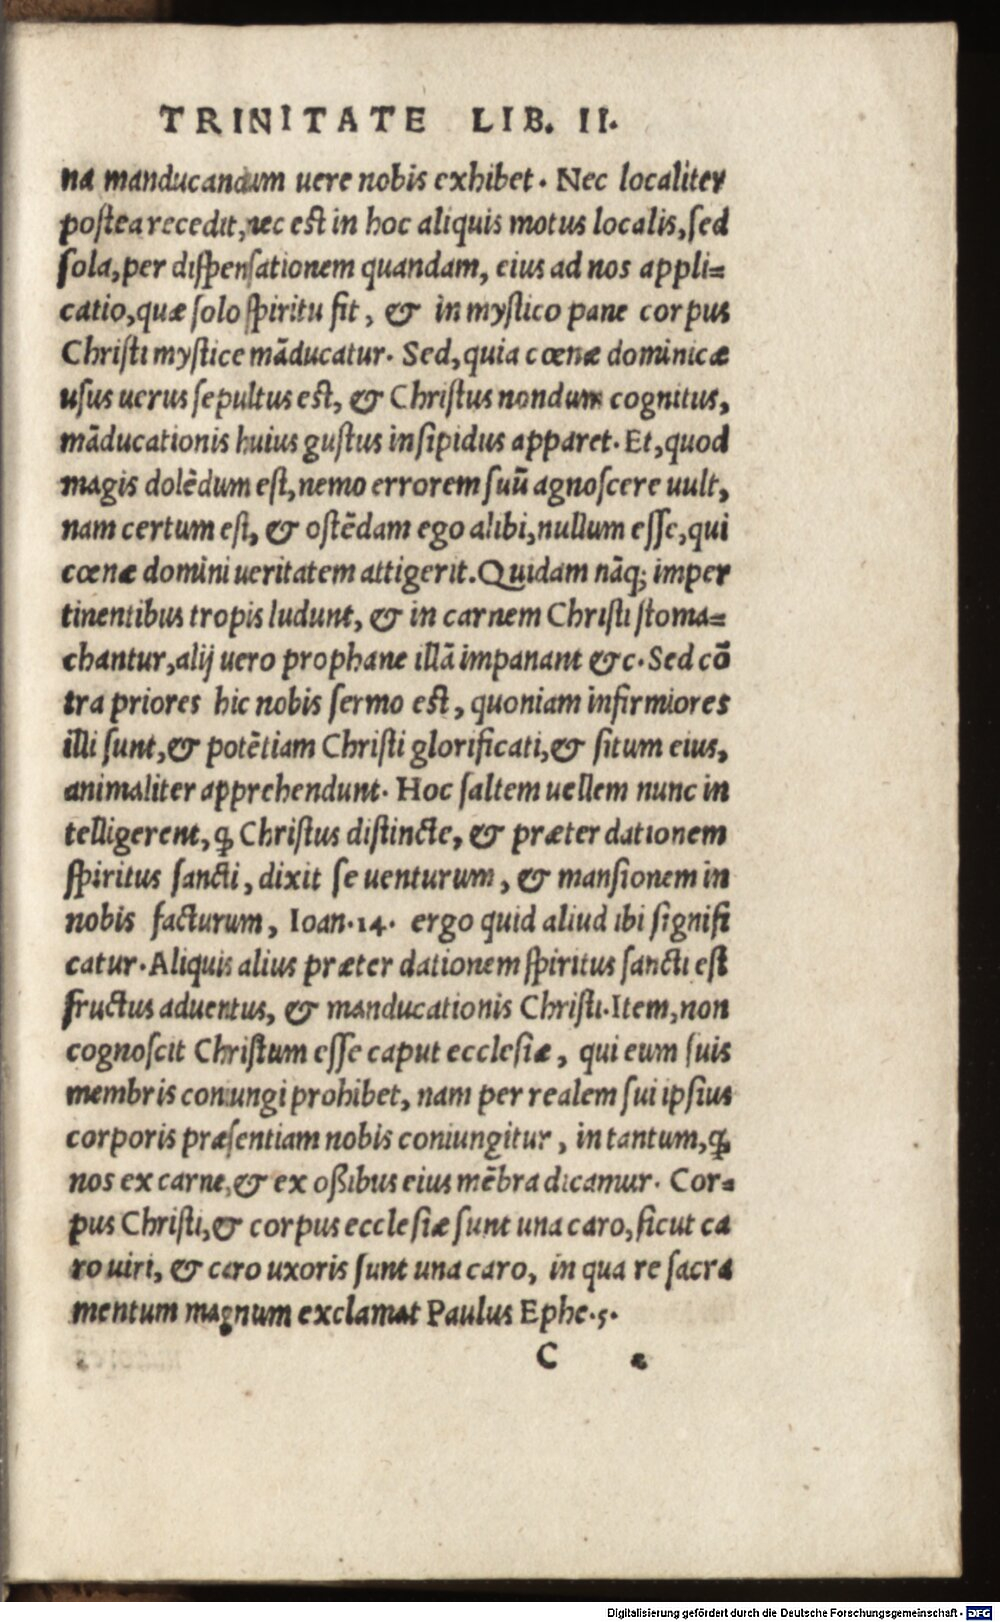 TRINITATE LIB. II.
na manducandum uere nobis exhibet. Nec localiter
postea recedit, nec est in hoc aliquis motus localis, sed
sola, per dispensationem quandam, eius ad nos appli=
catio, quæ solo spiritu fit, & in mystico pane corpus
Christi mystice mãducatur. Sed, quia cœnæ dominicæ
usus uerus sepultus est, & Christus nondum cognitus,
mãducationis huius gustus insipidus apparet. Et, quod
magis dolẽdum est, nemo errorem suũ agnoscere uult,
nam certum est, & ostẽdam ego alibi, nullum esse, qui
cœnæ domini ueritatem attigerit. Quidam nãq; imper
tinentibus tropis ludunt, & in carnem Christi stoma=
chantur, alij uero prophane illã impanant &c. Sed cõ
tra priores hic nobis sermo est, quoniam infirmiores
illi sunt, & potẽtiam Christi glorificati, & situm eius,
animaliter apprehendunt. Hoc saltem uellem nunc in
telligerent, ꝙ Christus distincte, & præter dationem
spiritus sancti, dixit se uenturum, & mansionem in
nobis facturum, Ioan. 14. ergo quid aliud ibi signifi
catur. Aliquis alius præter dationem spiritus sancti est
fructus aduentus, & manducationis Christi. Item, non
cognoscit Christum esse caput ecclesiæ, qui eum suis
membris coniungi prohibet, nam per realem sui ipsius
corporis præsentiam nobis coniungitur, in tantum, ꝙ
nos ex carne, & ex oßibus eius mẽbra dicamur. Cor=
pus Christi, & corpus ecclesiæ sunt una caro, sicut ca
ro uiri, & caro uxoris sunt una caro, in qua re sacra
mentum magnum exclamat Paulus Ephe. 5.
C
Digitalisierung gefördert durch die Deutsche Forschungsgemeinschaft - DFG